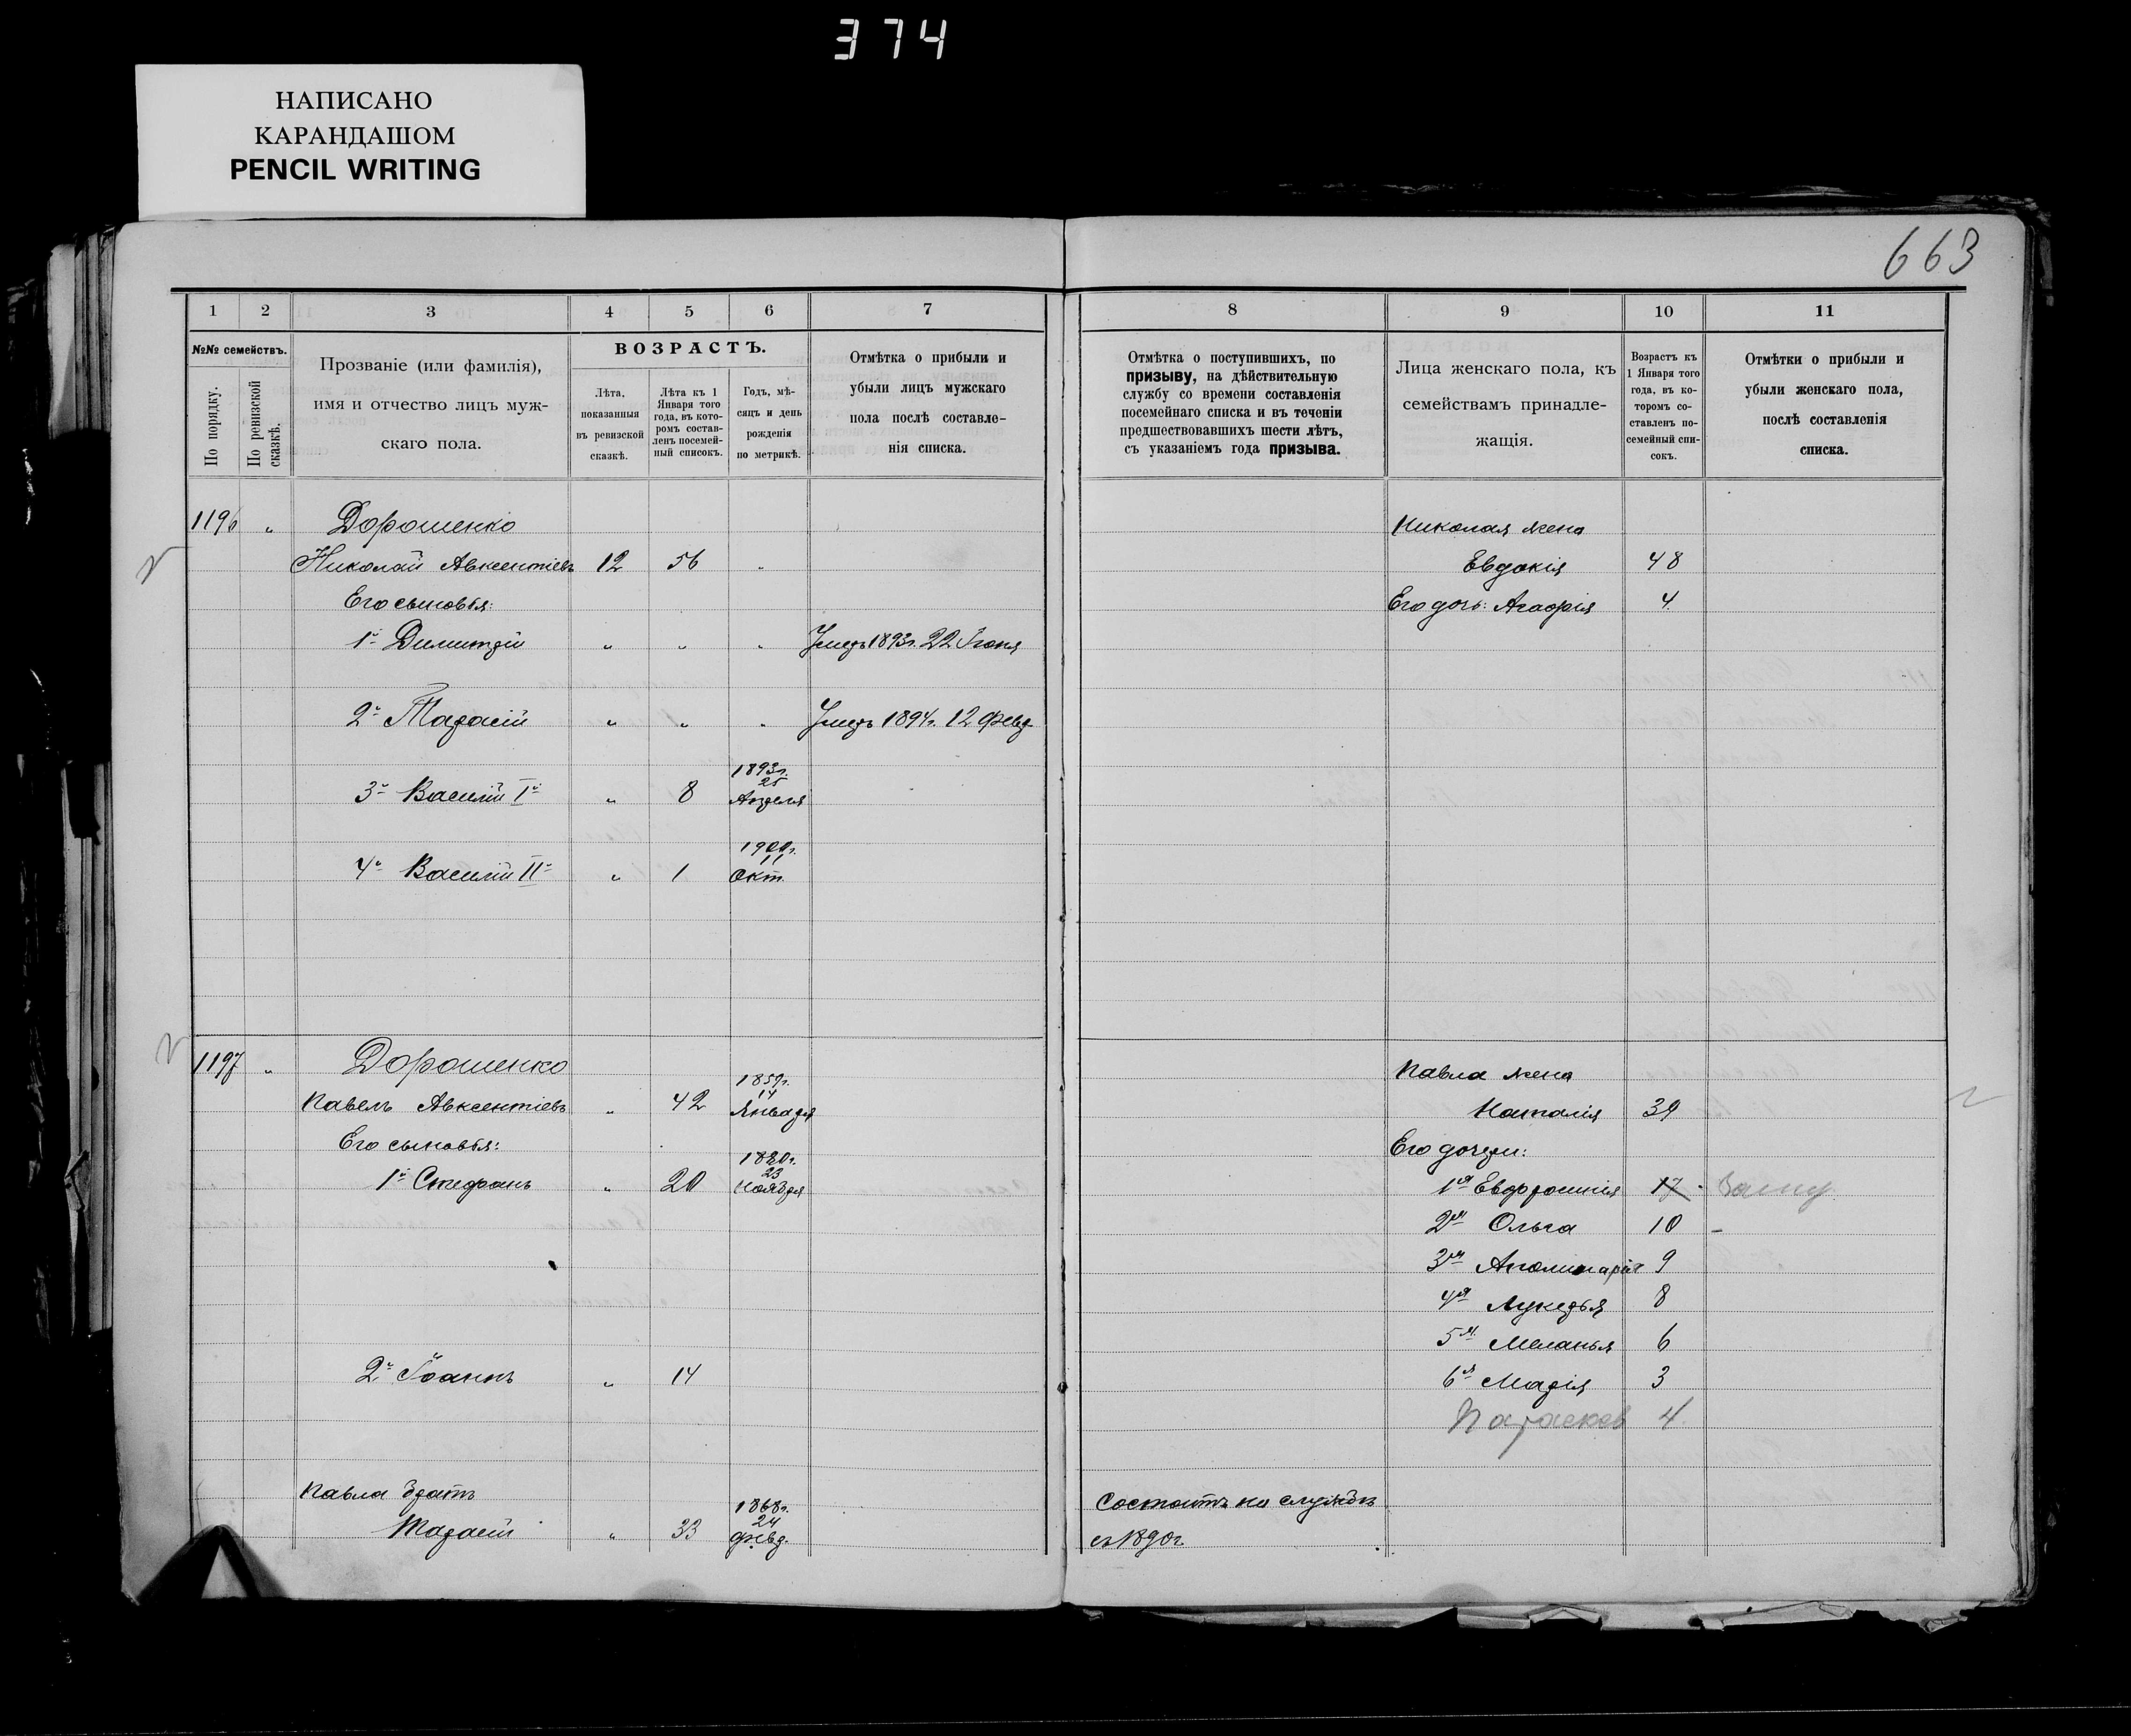 374
НАПИСАНО
КАРАНДАШОМ
PENCIL WRITING
663
1 2 3 4 5 6 7 8 9 10 11
№№ семействъ.
По порядку.
По ревизской сказкѣ.
Прозваніе (или фамилія),
имя и отчество лицъ муж-
скаго пола.
ВОЗРАСТЪ.
Лѣта,
показанныя
въ ревизской
сказкѣ.
Лѣта къ 1
Января того
года, въ кото-
ромъ состав-
ленъ посемей-
ный списокъ.
Годъ, мѣ-
сяцъ и день
рожденія
по метрикѣ.
Отмѣтка о прибыли и
убыли лицъ мужскаго
пола послѣ составле-
нія списка.
Отмѣтка о поступившихъ, по
призыву, на дѣйствительную
службу со времени составленія
посемейнаго списка и въ теченіи
предшествовавшихъ шести лѣтъ,
съ указаніемъ года призыва.
Лица женскаго пола, къ
семействамъ принадле-
жащія.
Возрастъ къ
1 Января того
года, въ ко-
торомъ со-
ставленъ по-
семейный спи-
сокъ.
Отмѣтки о прибыли и
убыли женскаго пола,
послѣ составленія
списка.
1196 " Дорошенко
Николай Авксентіевъ 12 56 "
Его сыновья:
1й Димитрій " " " Умеръ 1893г. 22 Іюня
2й Тарасій " " " Умеръ 1894г. 12 Февр.
3й Василій Iй " 8 1893г. 25 Апреля
4й Василій IIй " 1 1900г. 11 Окт.
Николая жена
Евдокія 48
Его дочь: Агафія 4
1197 " Дорошенко
Павелъ Авксентіевъ " 42 1859г. 14 Января
Его сыновья:
1й Стефанъ " 20 1880г. 23 Ноября
2й Іоаннъ " 14
Павла братъ
Тарасій " 33 1868г. 24 Февр.
Состоитъ на службѣ
съ 1890г
Павла жена
Наталія 39
Его дочери:
1я Евфросинія 17
2я Ольга 10 –
3я Аполинарія 9
4я Лукерья 8
5я Меланья 6
6я Марія 3
Параскев 4